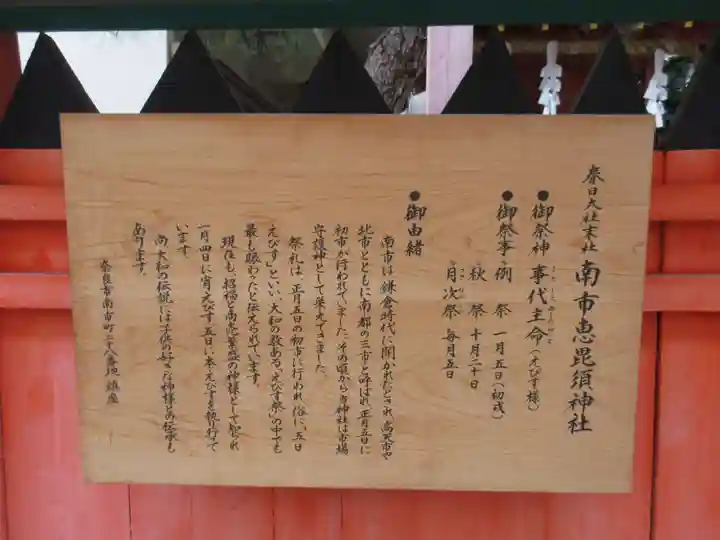 春日大社末社 南市恵毘須神社
●御祭神 事代主命(えびす様)
●御祭事 例祭 一月五日(初戎)
秋祭 十月二十日
月次祭 毎月五日
●御由緒
南市は鎌倉時代に開かれたとされ、高天市や
北市とともに南都の三市と呼ばれ、正月五日に
初市が行われていました。その頃から当神社は市場
守護神として栄えてきました。
祭礼は、正月五日の初市に行われ、俗に、五日
えびす」といい、大和の数ある、えびす祭"の中でも
最も賑わったと伝えられています。
現在も、招福と商売繁盛の神様として
一月四日に宵えびす、五日に本えびすを執り行て
います。
尚大和の伝説には子供の好きな神様との伝承も
あります。
奈良市南市町二十八番地 鎮座